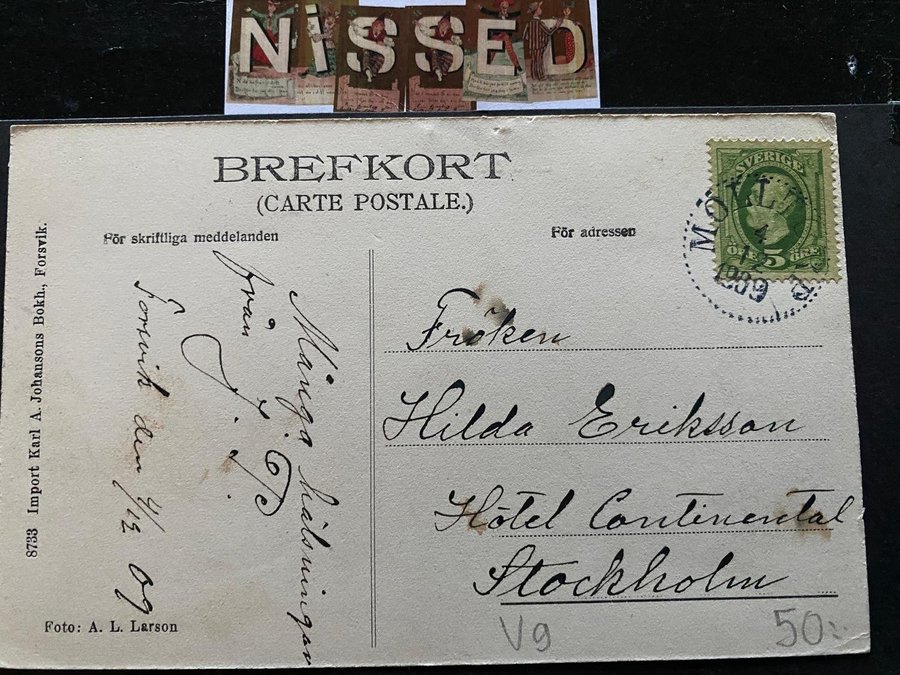 NISSED
BREFKORT
(CARTE POSTALE.)
För skriftliga meddelanden
För adressen
SVERIGE
5 ÖRE
4
12
1909
Många hälsningar
från
J. P.
Forsvik den 4/12 09
Fröken
Hilda Eriksson
Hôtel Continental
Stockholm
8733 Import Karl A. Johansons Bokh., Forsvik.
Foto: A. L. Larson
Vg
50:-